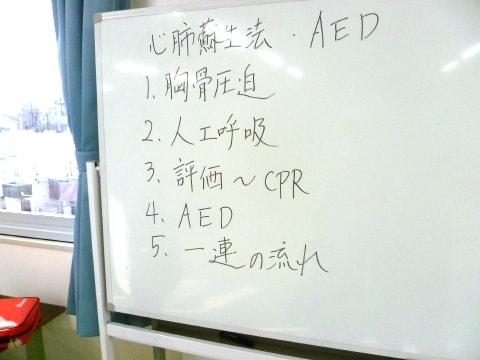 心肺蘇生法・AED
1. 胸骨圧迫
2. 人工呼吸
3. 評価～CPR
4. AED
5. 一連の流れ